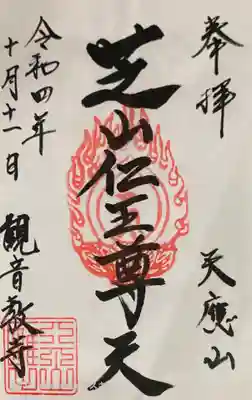 奉拝
天應山
芝山仁王尊天
令和四年
十月十一日
観音教寺